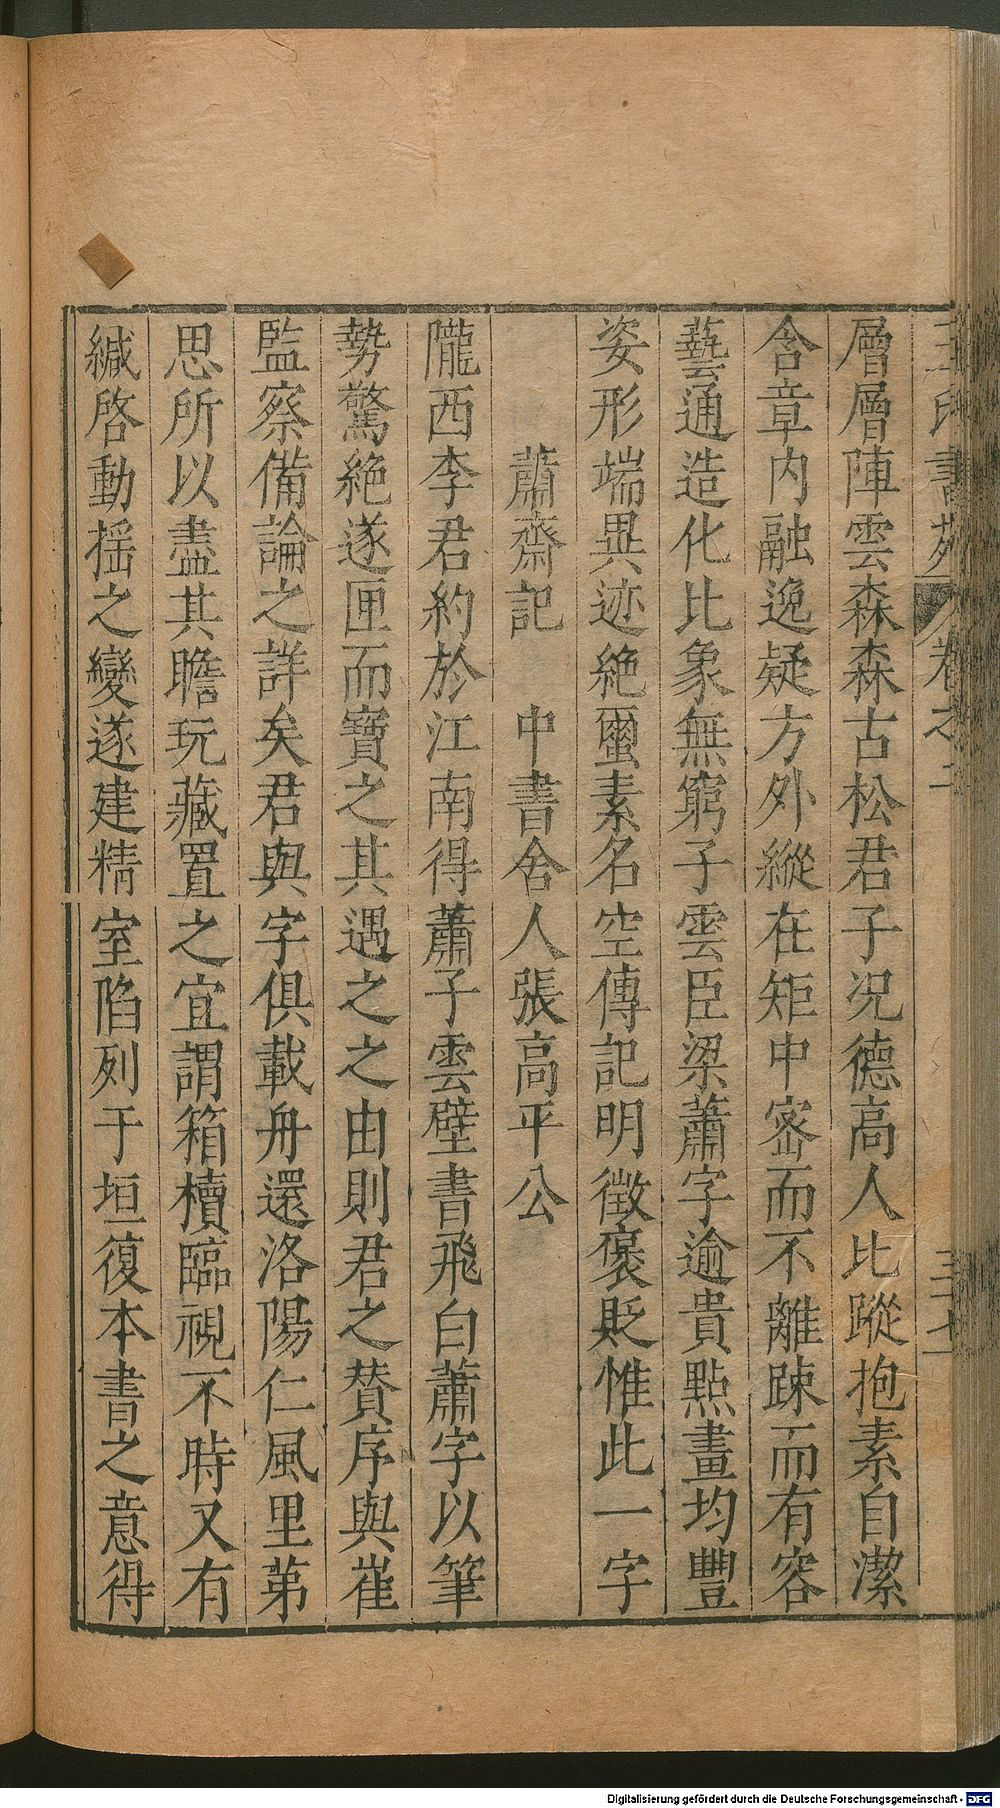 書苑 卷之二 三十一
層層陣雲森森古松君子況德高人比蹤抱素自潔
含章內融逸疑方外縱在矩中密而不離踈而有容
藝通造化比象無窮子雲臣梁蕭字逾貴點畫均豐
姿形端異迹絕璽素名空傳記明徵褒貶惟此一字
蕭齋記 中書舍人張高平公
隴西李君約於江南得蕭子雲壁書飛白蕭字以筆
勢驚絕遂匣而寶之其遇之之由則君之賛序與崔
監察備論之詳矣君與字俱載舟還洛陽仁風里第
思所以盡其瞻玩藏置之宜謂箱櫝臨視不時又有
緘啓動揺之變遂建精室陷列于垣復本書之意得
Digitalisierung gefördert durch die Deutsche Forschungsgemeinschaft - DFG